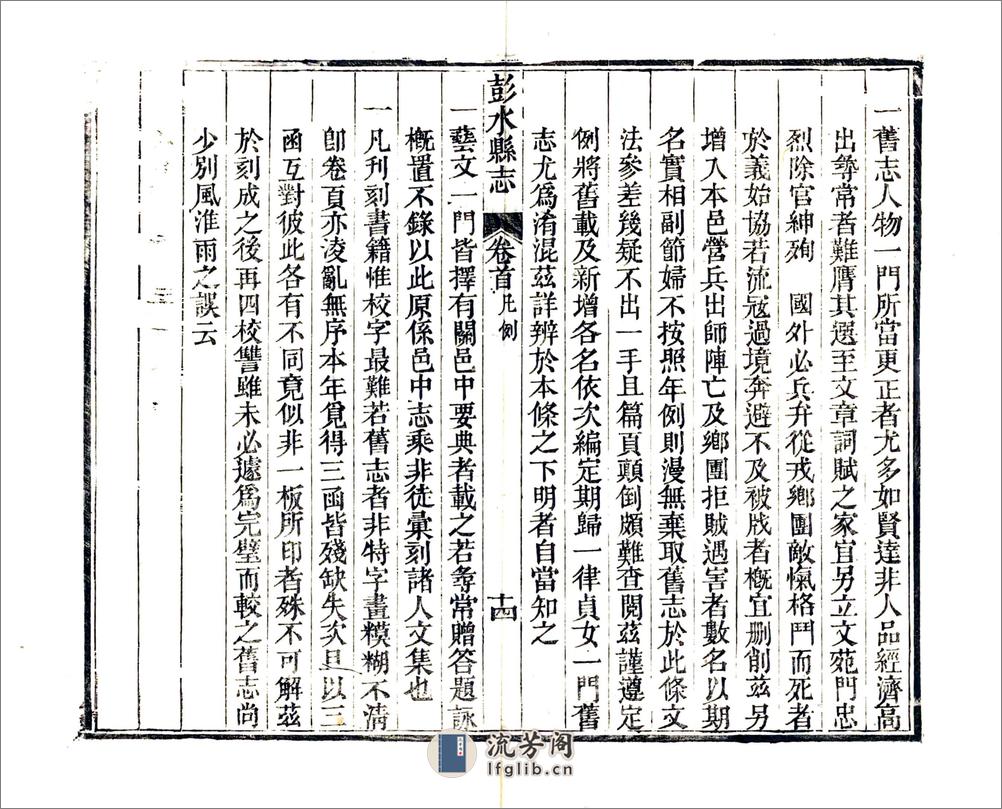 一舊志人物一門所當更正者尤多如賢達非人品經濟高
出尋常者難膺其選至文章詞賦之家宜另立文苑門忠
烈除官紳殉 國外必兵弁從戎鄉團敵愾格鬥而死者
於義始協若流寇過境奔避不及被戕者概宜刪削茲另
增入本邑營兵出師陣亡及鄉團拒賊遇害者數名以期
名實相副節婦不按照年例則漫無棄取舊志於此條文
法參差幾疑不出一手且篇頁顛倒頗難查閱茲謹遵定
例將舊載及新增各名依次編定期歸一律貞女一門舊
志尤為淆混茲詳辨於本條之下明者自當知之
彭水縣志 卷首 凡例 十四
一藝文一門皆擇有關邑中要典者載之若尋常贈答題詠
概置不錄以此原係邑中志乘非徒彙刻諸人文集也
一凡刊刻書籍惟校字最難若舊志者非特字畫糢糊不清
卽卷頁亦淩亂無序本年覓得三函皆殘缺失次且以三
函互對彼此各有不同竟似非一板所印者殊不可解茲
於刻成之後再四校讐雖未必遽為完璧而較之舊志尚
少別風淮雨之誤云
流芳阁
lfglib.cn